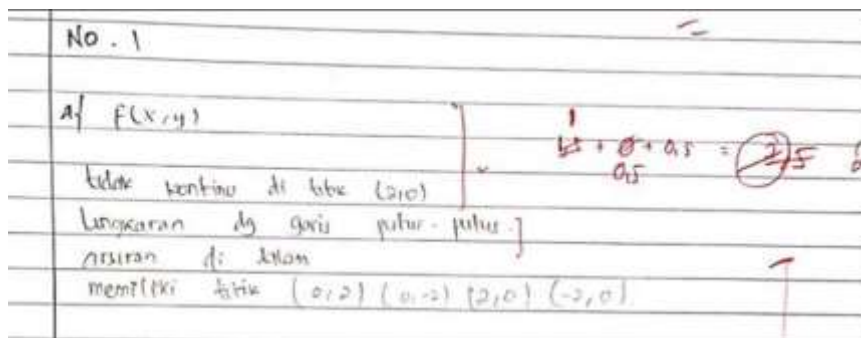 No. 1
A/ F(x,y)
1
1,5 + 0 + 0,5 = 2,5
0,5
tidak kontinu di titik (2,0)
lingkaran dg garis putus-putus
arsiran di dalam
memiliki titik (0,2) (0,-2) (2,0) (-2,0)